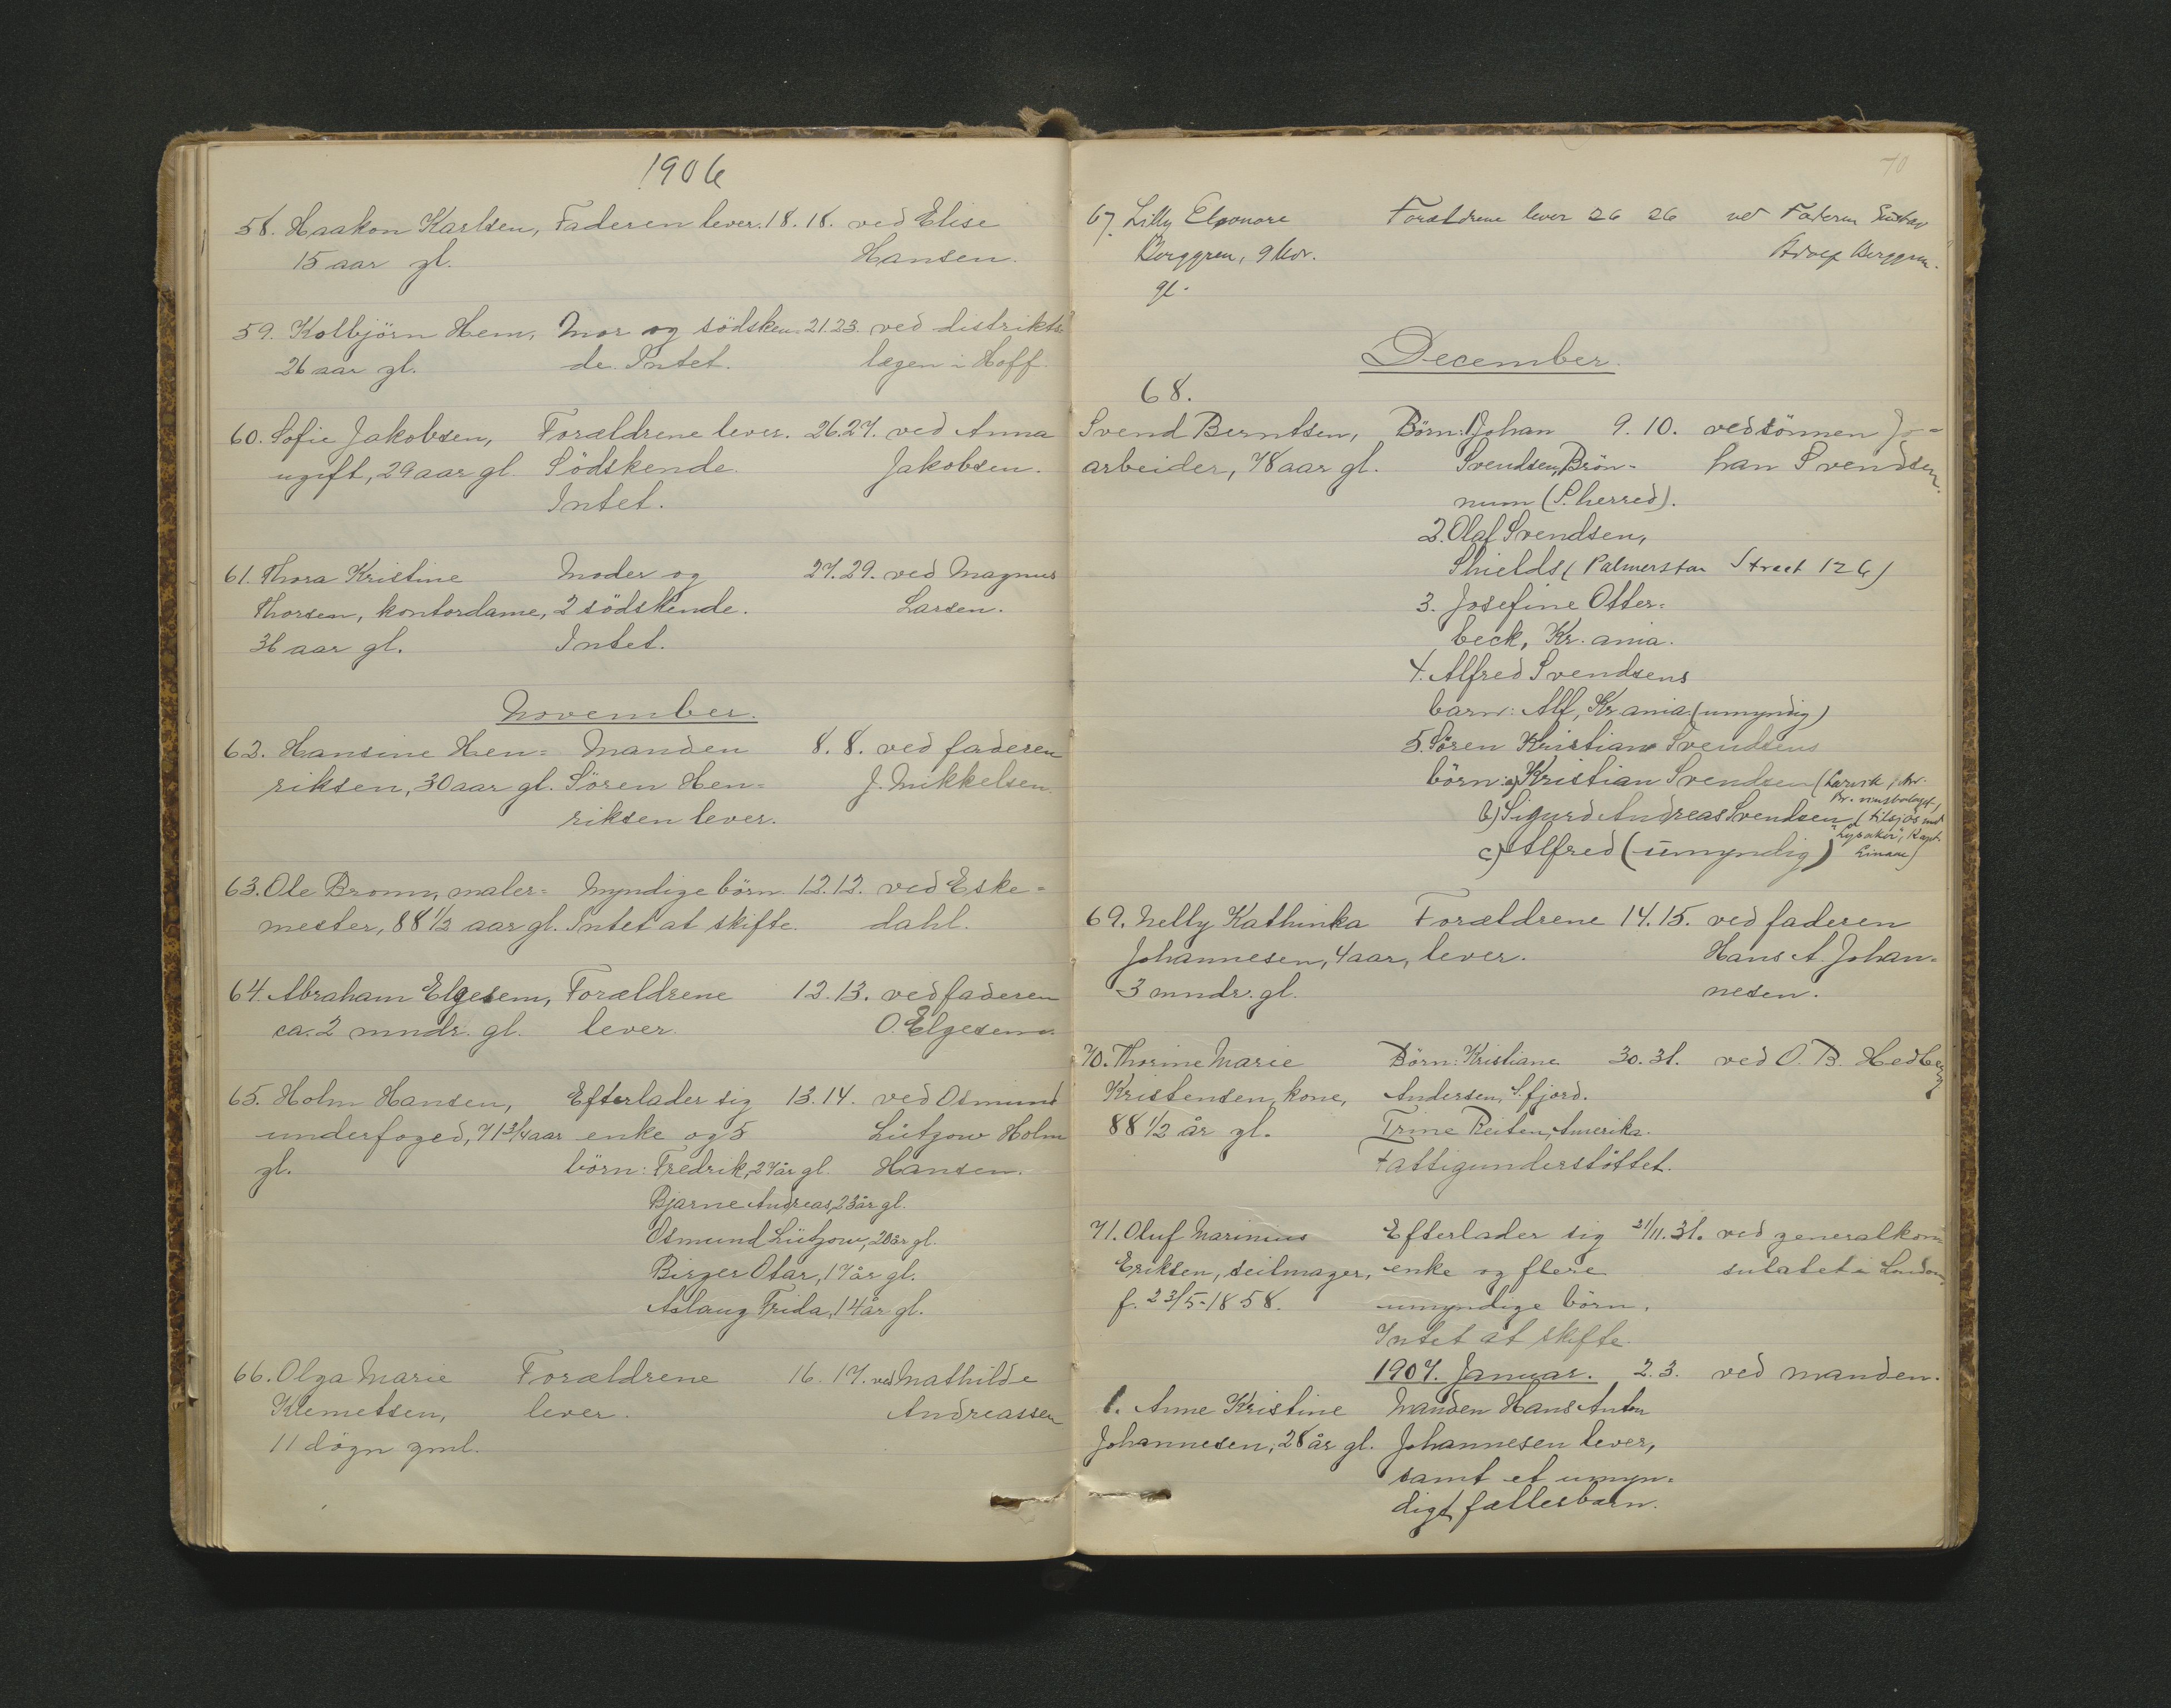 1906
58. Haakon Karlsen, Faderen lever. 18. 18. ved Elise
15 aar gl. Hansen.
59. Kolbjörn Hem, Mor og södsken= 21. 23. ved distrikts=
26 aar gl. de. Intet. lægen i Hoff.
60. Sofie Jakobsen, Forældrene lever. 26. 27. ved Anna
ugift, 29 aar gl. Södskende. Jakobsen.
Intet.
61. Thora Kristine Moder og 27. 29. ved Magnus
Thorsen, kontordame, 2 södskende. Larsen.
36 aar gl. Intet.
November.
62. Hansine Hen= Manden 8. 8. ved faderen
riksen, 30 aar gl. Sören Hen= J. Mikkelsen.
riksen lever.
63. Ole Bronn, maler= Myndige börn. 12. 12. ved Eske=
mester, 88 1/2 aar gl. Intet at skifte. dahl.
64. Abraham Elgesem, Forældrene 12. 13. ved faderen
ca. 2 mndr. gl. lever. O. Elgesem.
65. Holm Hansen, Efterlader sig 13. 14. ved Osmund
underfoged, 71 3/4 aar enke og 5 Lützow Holm
gl. börn: Fredrik, 27 år gl. Hansen.
Bjarne Andreas, 23 år gl.
Osmund Lützow, 20 år gl.
Birger Otar, 17 år gl.
Aslaug Frida, 14 år gl.
66. Olga Marie Forældrene 16. 17. ved Mathilde
Klemetsen, lever. Andreassen
11 dögn gml.
70
67. Lilly Eleonore Forældrene lever 26 26 ved Faderen Gustav
Berggren, 9 Uer. Adolf Berggren.
gl.
December.
68.
Svend Berntsen, Börn: 1. Johan 9. 10. ved sönnen Jo=
arbeider, 78 aar gl. Svendsen, Brön= han Svendsen.
num (S. herred).
2. Olaf Svendsen,
Shields (Palmerston Street 126)
3. Josefine Otter=
beck, Kr.ania.
4. Alfred Svendsens
barn: Alf, Kr.ania (umyndig)
5. Sören Kristian Svendsens
börn: a) Kristian Svendsen (Larvik,
b) Sigurd Andreas Svendsen, (tilsjös med
c) Alfred (umyndig) "Lysaker", Kapt.
69. Nelly Kathinka Forældrene 14. 15. ved faderen
Johannesen, 4 aar, lever. Hans A. Johan=
3 mndr. gl. nesen.
70. Thorine Marie Börn: Kristiane 30. 31. ved O. B. Hedberg
Kristensen, kone, Andersen, S.fjord.
88 1/2 år gl. Trine Reiten, Amerika.
Fattigunderstöttet.
71. Oluf Marinius Efterlader sig 21/11. 31. ved generalkon=
Eriksen, seilmager, enke og flere sulatet i London
f. 23/5-1858. umyndige börn.
Intet at skifte.
1907. Januar. 2. 3. ved manden.
1. Anne Kristine Manden Hans Anton
Johannesen, 28 år gl. Johannesen lever,
samt et umyn=
digt fællesbarn.